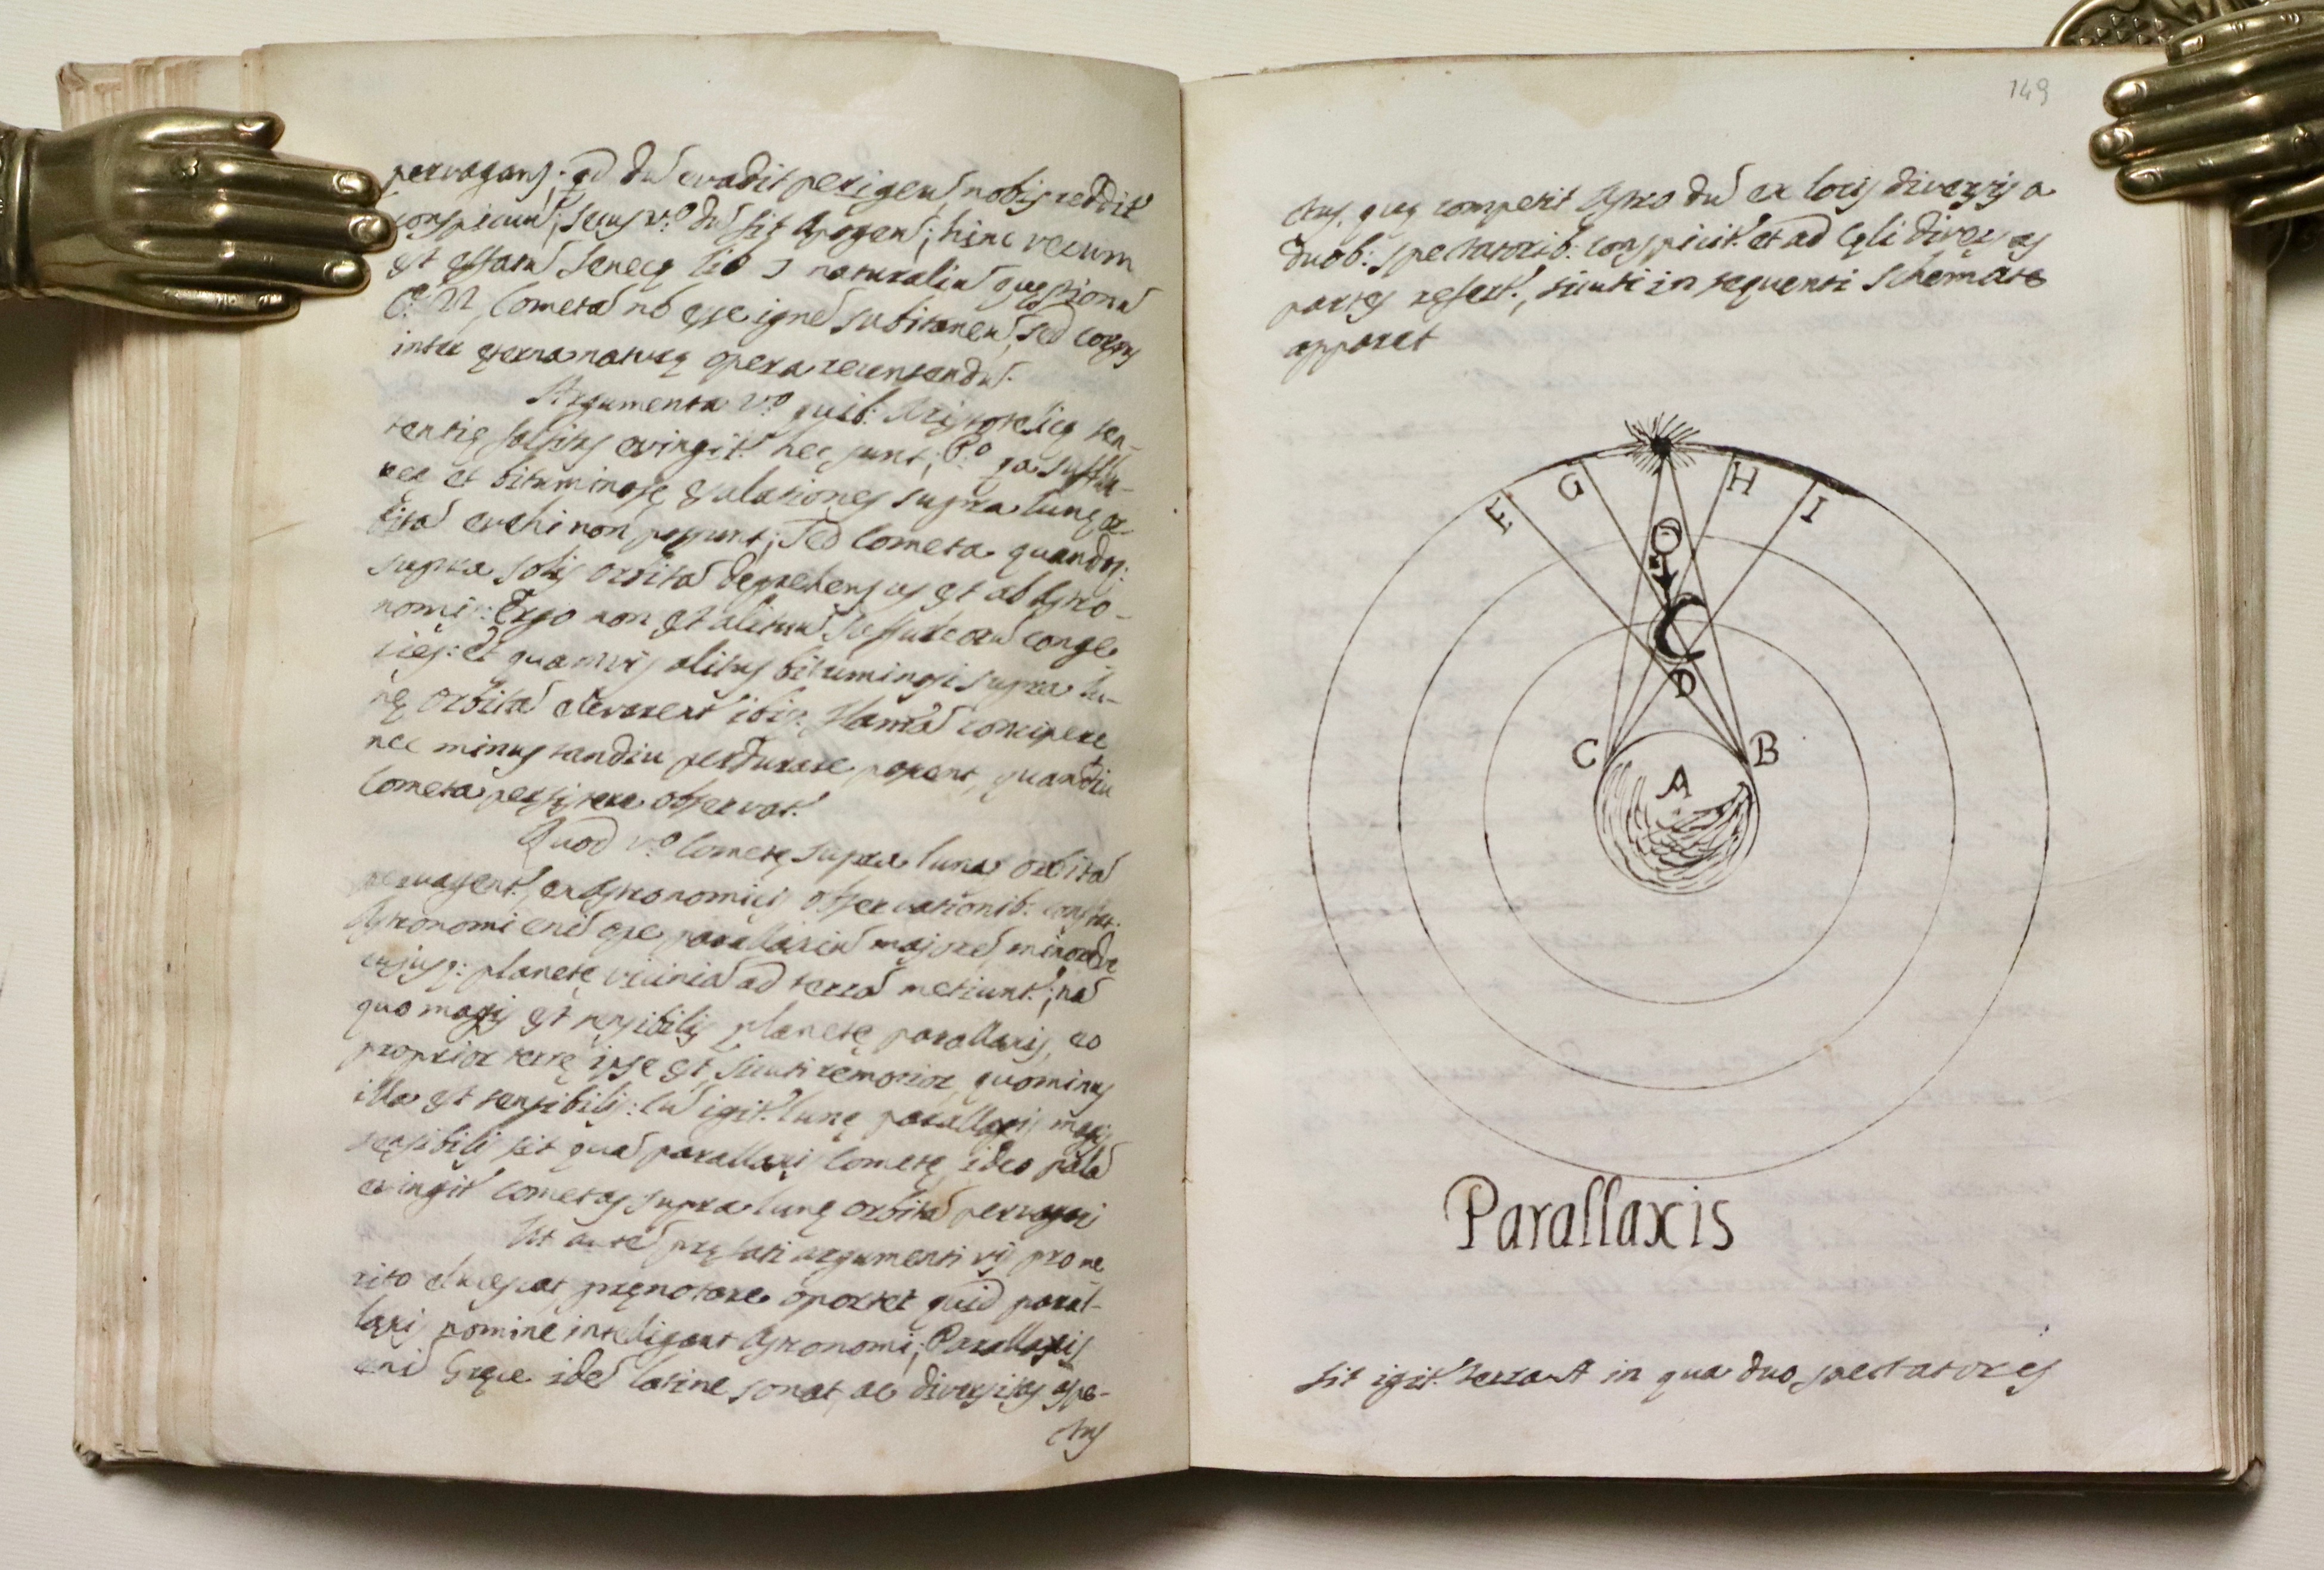 pervagans; qd du evadit perigeu, nobis reddit
conspicuu, secus vo du sit Apogeu; hinc verum
est effatu Senecę lib naturaliu quęstionu
Cometa no esse igne subitaneu, sed corpus
inter ęterna naturę opera recensendu.
Argumenta vo quib: Aristotelicę sen-
tentię falsitas evingit. hec sunt; Po qa sulfu-
reę et bituminosę exalationes supra lunę or-
bita evehi non possunt; Sed Cometa quandoq:
supra solis orbita deprehensus est ab Astro-
nomis: Ergo non est alituu congę
ries: et quamvis alitus bituminosi supra lu-
nę orbita elevarent. ibiq. flama concipere
nec minus tandiu perdurare possent, quandiu
Cometa persistere observat.
Quod vo Cometę supra luna orbita
pervagent, ex Astronomicis observationib: constat.
Astronomi eni ope parallaxiu majore, minoreve
cujusq: planetę vicinia ad terra metiunt.; na
quo magis est sensibilis planetę parallaxis, eo
proprior terrę ipse est, sicuti remotior, quominus
illa est sensibilis: Cu igit. lunę parallaxis magis
sensibilis sit qua parallaxis Cometę, ideo pala
evingit cometas supra lunę orbita pervagari
Ut aute pręfati argumenti vis pro me
rito elucescat, pręnotare oportet quid paral-
laxis nomine intelligant Astronomi; Parallaxis
eni Gręce ide latine sonat, ac diversitas aspe-
ctus
149
ctus, quę competit Astro du ex locis diversis a
duob: spectatorib: conspicit. et ad Cęli diversas
partes refert., sicuti in sequenti schemate
apparet
F G H I
D
C B
A
Parallaxis
Sit igit. terra A in qua duo spectatores